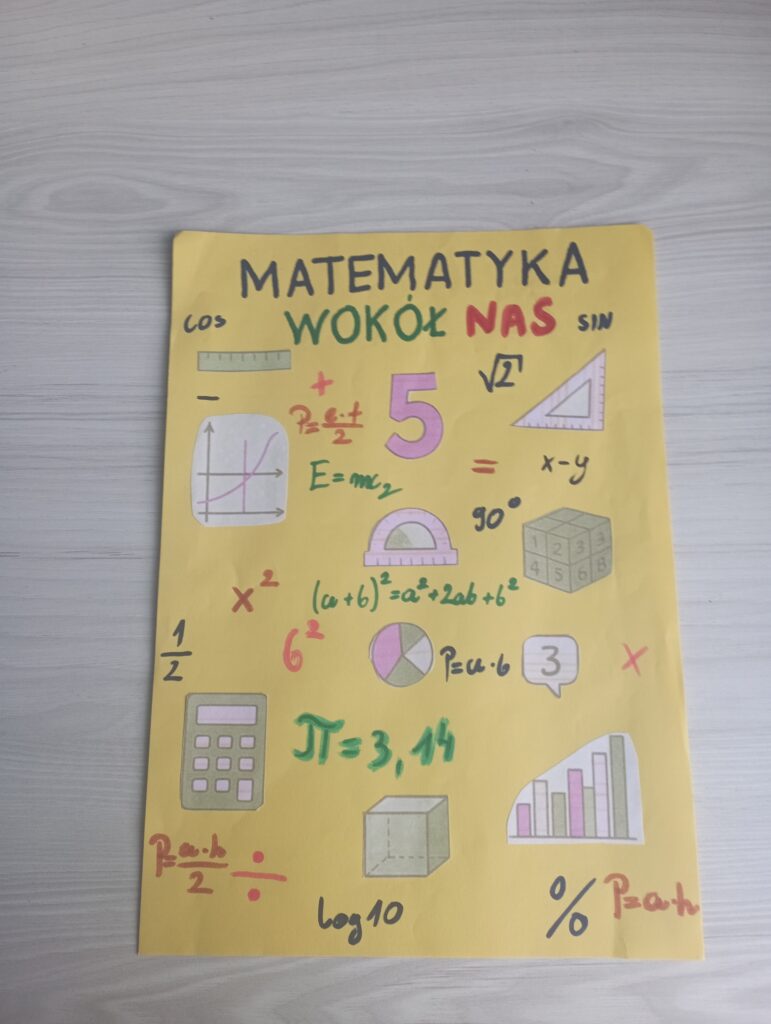 MATEMATYKA
WOKÓŁ NAS
cos
SIN
√2
+
5
—
P=a·h/2
E=mc2
=
x-y
90°
1 2 3 3
4 5 6 8
x²
(a+b)²=a²+2ab+b²
1/2
6²
P=a·b
3
x
π=3,14
P=a·h/2
÷
log10
%
P=a·h